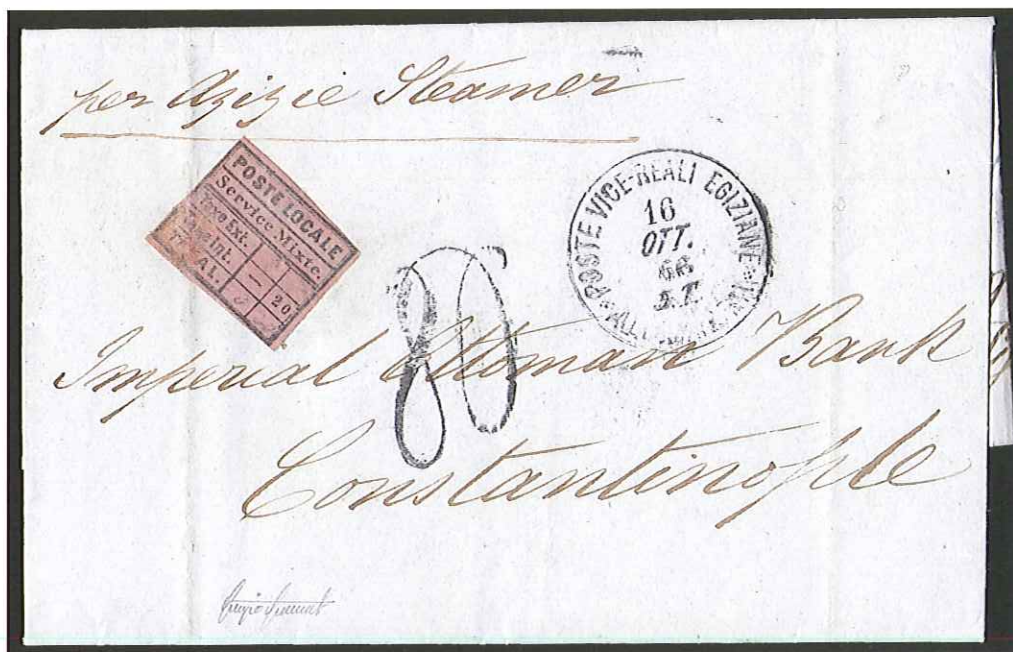 per Azizie Steamer
POSTE LOCALE
Service Mixte.
Taxe Ext.
Taxe Int. — —
TAL. 20
POSTE VICE-REALI EGIZIANE
16
OTT.
66
80
Imperial Ottoman Bank
Constantinople